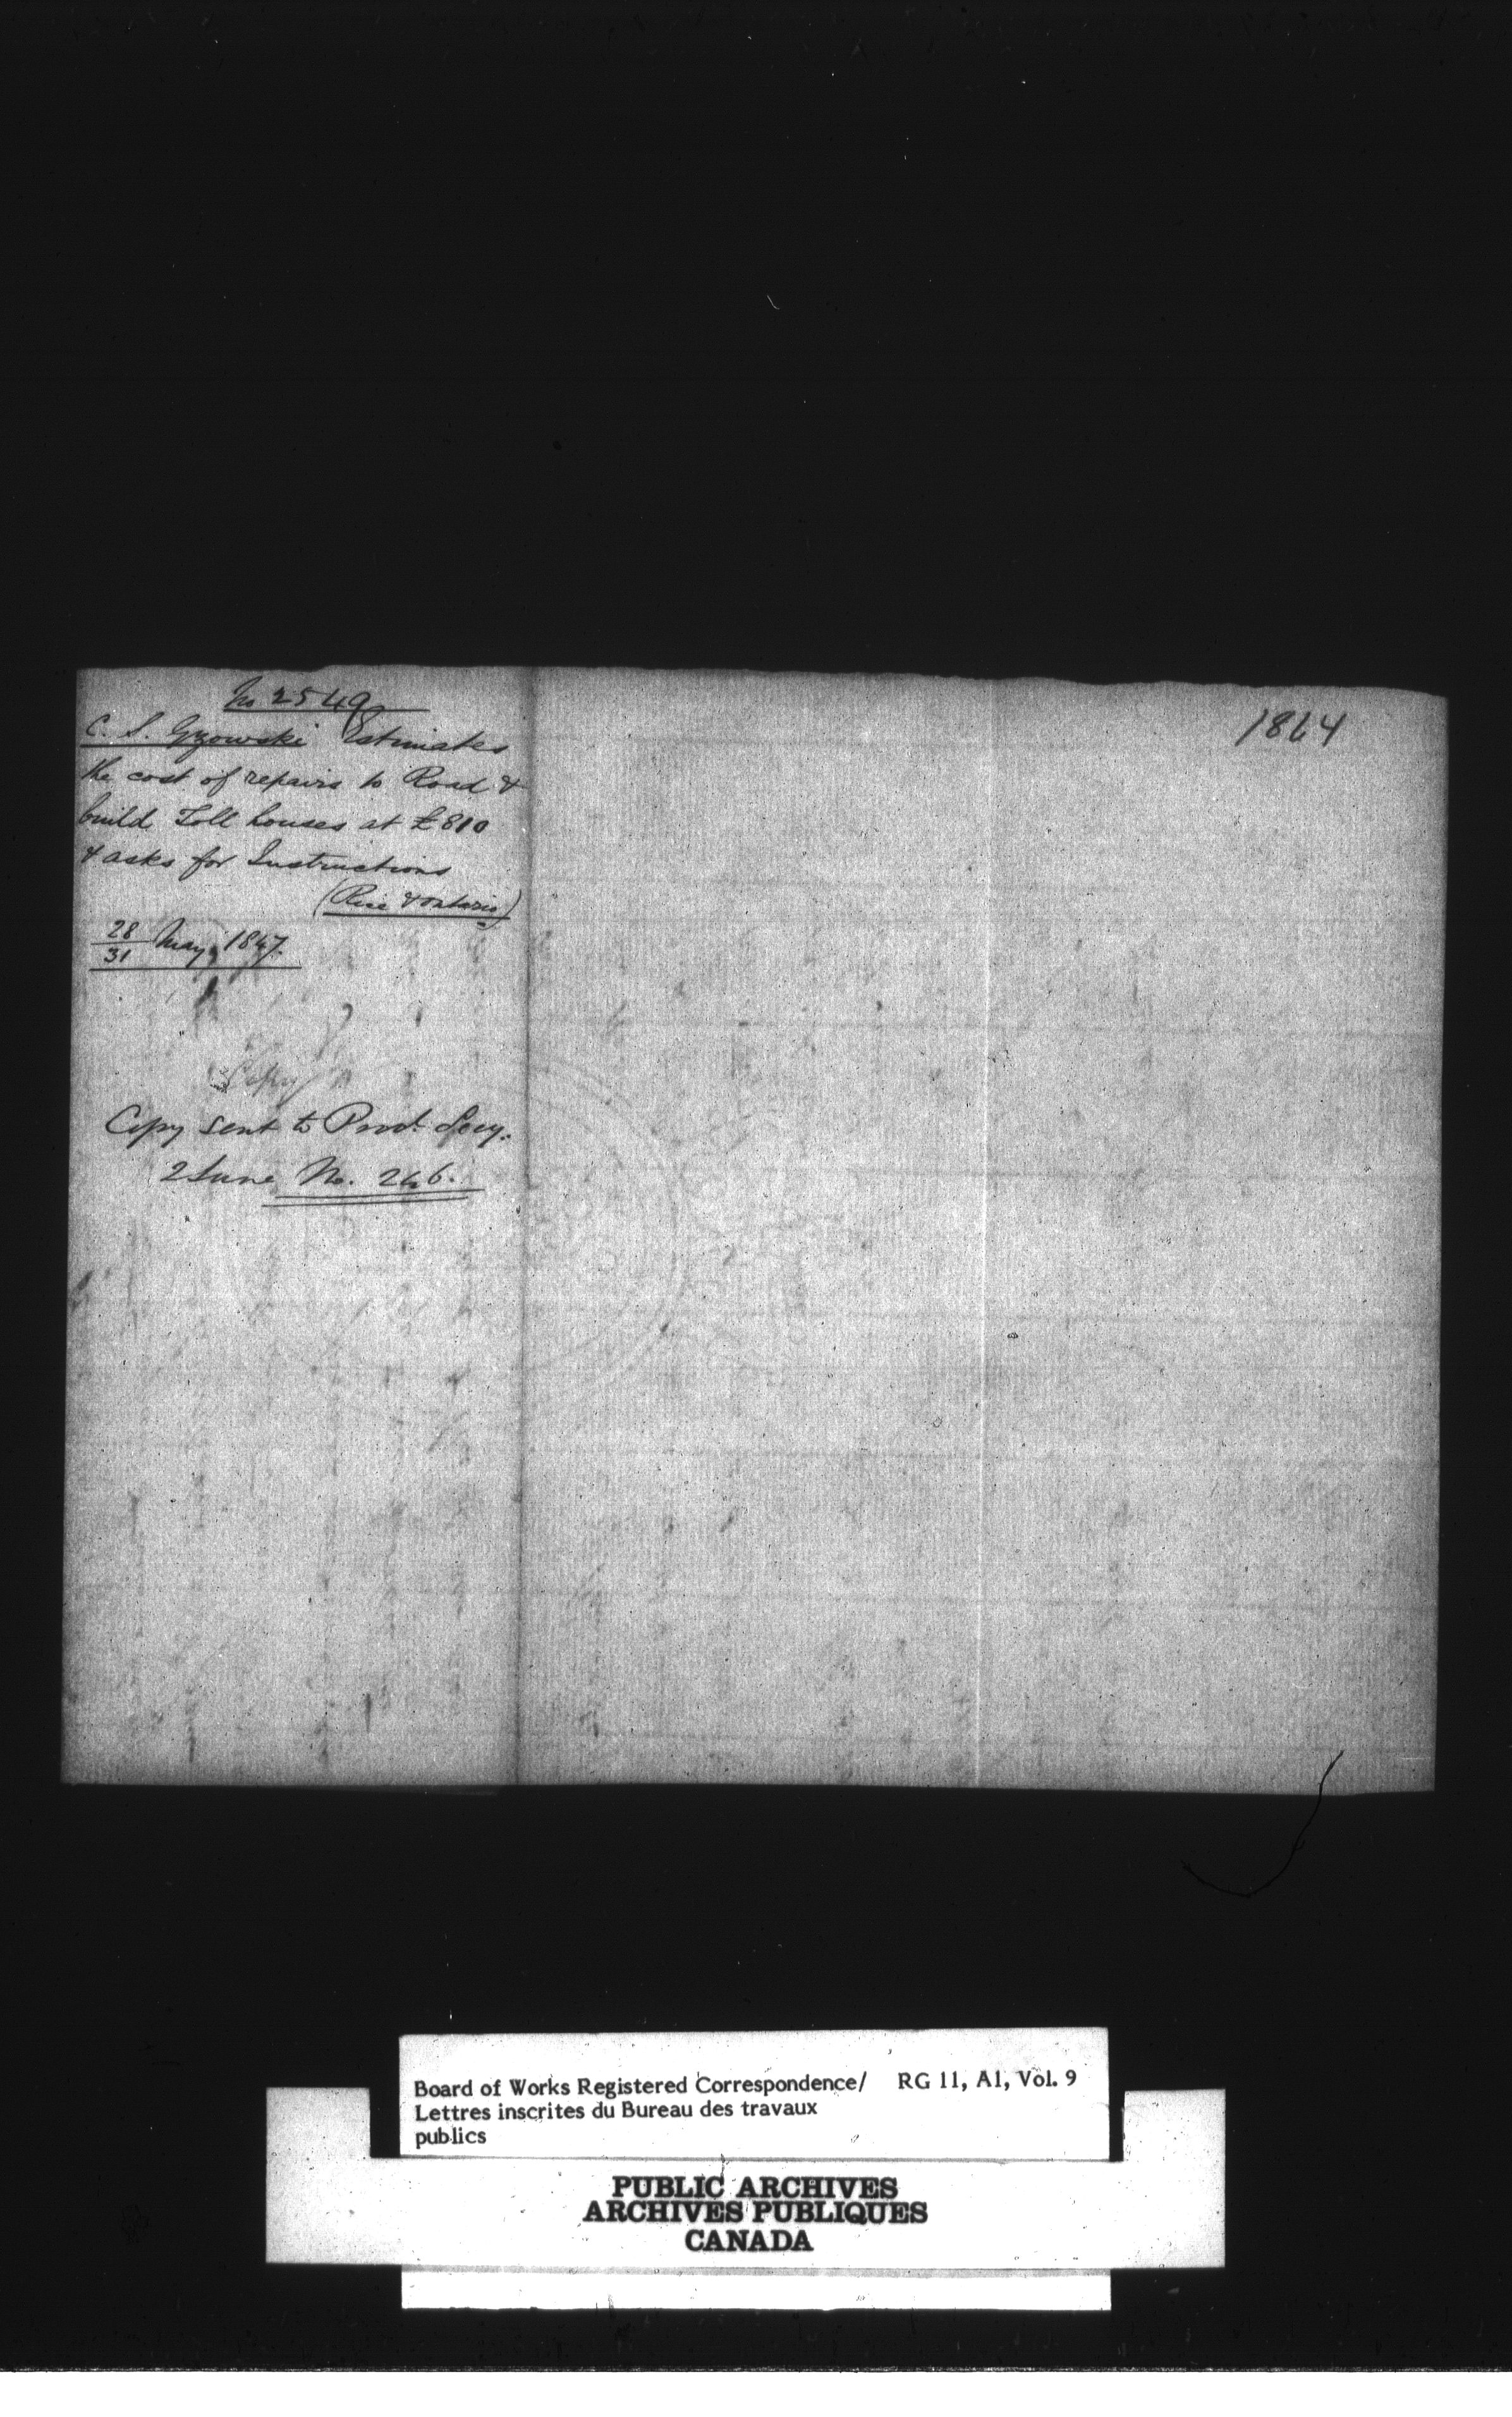 No 2549
C. S. Gzowski Estimates
the cost of repairs to Road &
build Toll houses at £810
& asks for Instructions
(Rice & Ontario)
28/31 May, 1847.
Copy
Copy sent to Provl. Secy.
2 June No. 246.
1864
Board of Works Registered Correspondence/ RG 11, A1, Vol. 9
Lettres inscrites du Bureau des travaux
publics
PUBLIC ARCHIVES
ARCHIVES PUBLIQUES
CANADA